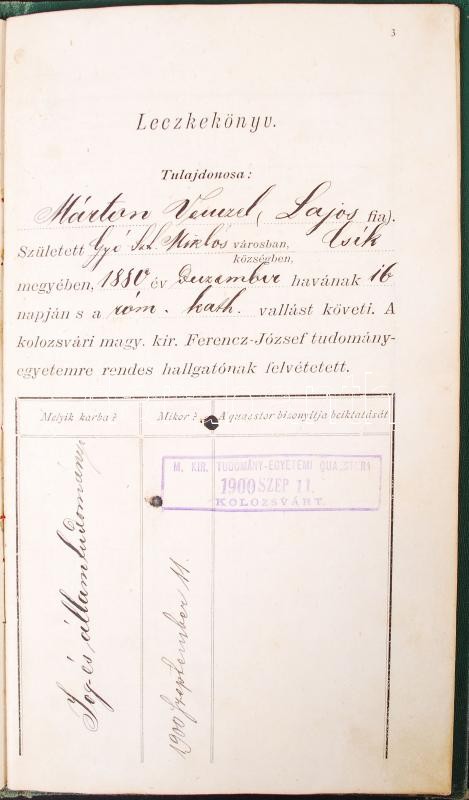 3
Leczkekönyv.
Tulajdonosa:
Márton Venczel, (Lajos fia).
Született Gyó Szt. Miklós városban, Csik
községben,
megyében, 1880 év Deczember havának 16
napján s a róm. kath. vallást követi. A
kolozsvári magy. kir. Ferencz-József tudomány-
egyetemre rendes hallgatónak felvétetett.
Melyik karba? Mikor? A quaestor bizonyitja beiktatását
M. KIR. TUDOMÁNY-EGYETEMI QUAESTORI
1900 SZEP 11.
KOLOZSVÁRT.
Jog-és államtudományi
1900 szeptember 11.